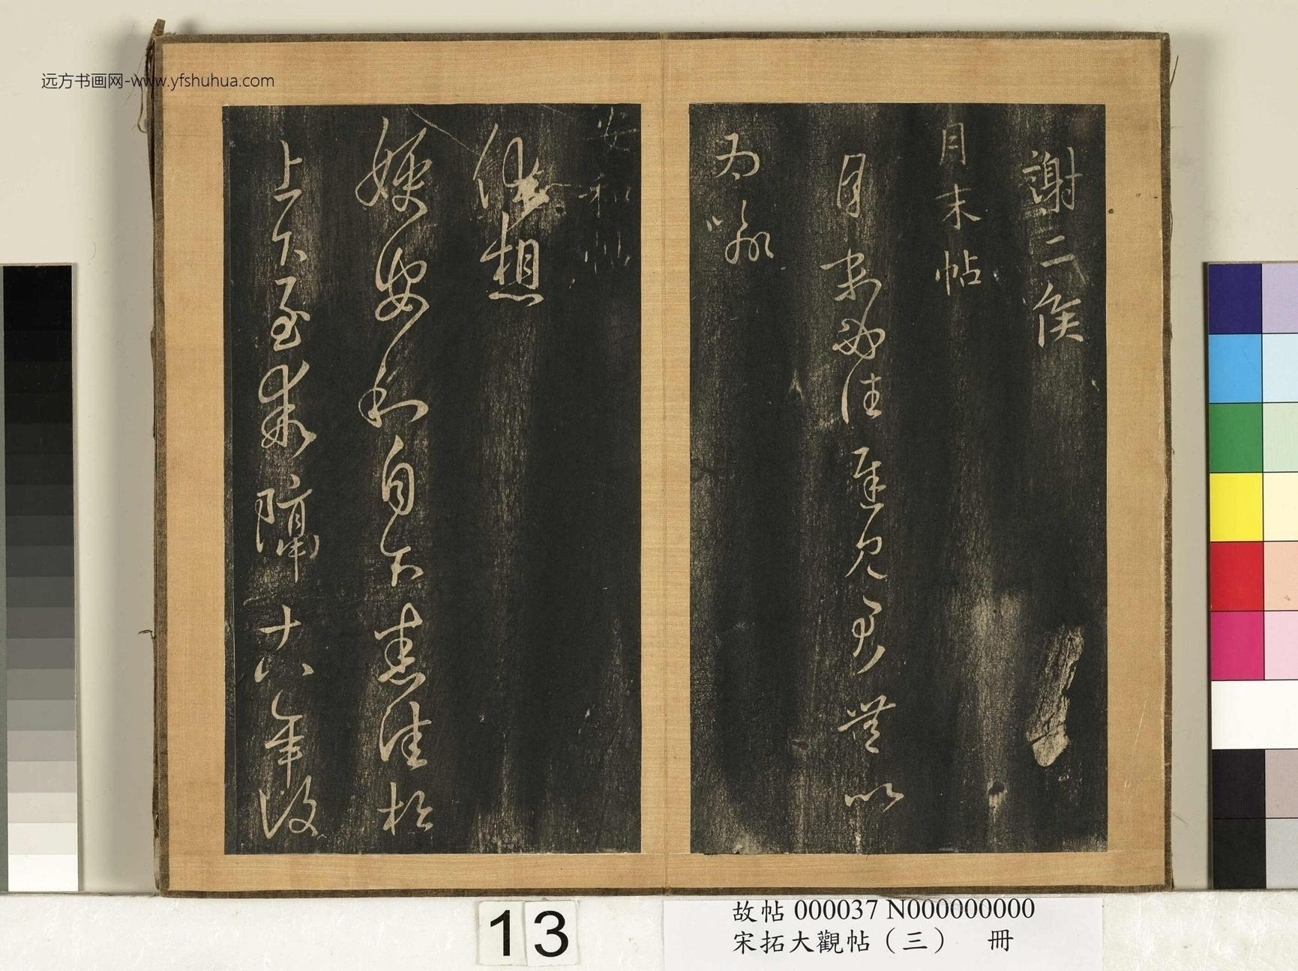 远方书画网-www.yfshuhua.com
謝二侯
月末帖
月末必往遲見君無以
為喻
安和帖
但想
嫂安和自下悉佳松
上下至乖隔十八年復
13
故帖 000037 N000000000
宋拓大觀帖（三） 冊